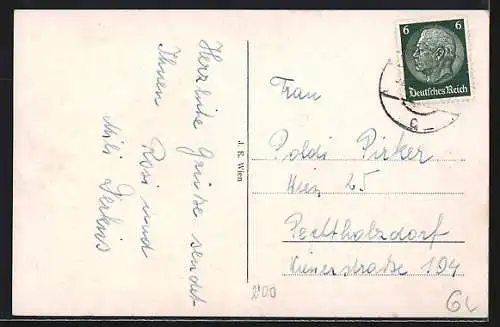 Herzliche Grüße sendet
Ihnen Rosi und
Mili
J. E. Wien
6 6
Deutsches Reich
Frau
Poldi Pirker
Wien 25
Perchtholzdorf
Wienerstraße 194
200
GL